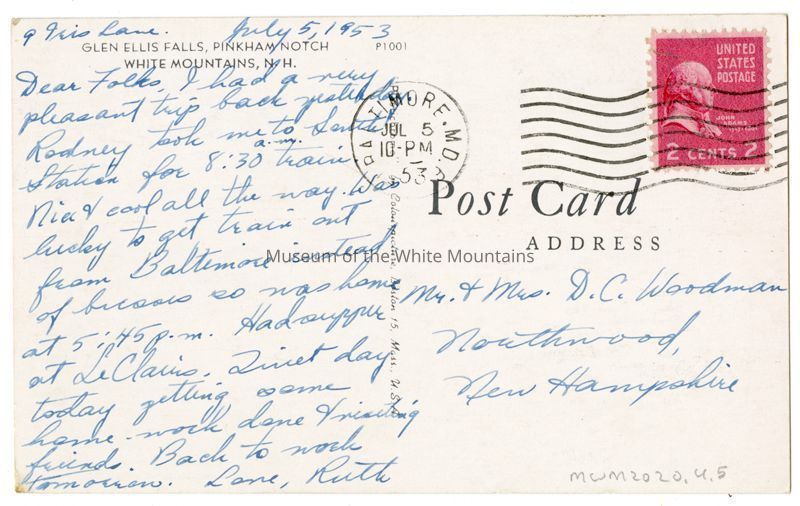 9 Iris Lane. July 5, 1953
GLEN ELLIS FALLS, PINKHAM NOTCH P1001
WHITE MOUNTAINS, N. H.
Dear Folks, I had a very
pleasant trip back yesterday.
Rodney took me to South
Station for 8:30 a.m. train.
Nice & cool all the way. Was
lucky to get train out
from Baltimore instead
of busses so was home
at 5:45 p.m. Had supper
at LeClairs. Quiet day
today getting some
home-work done & visiting
friends. Back to work
tomorrow. Love, Ruth
BALTIMORE, MD.
JUL 5
10-PM
1953
UNITED
STATES
POSTAGE
JOHN
ADAMS
2 CENTS 2
Post Card
ADDRESS
Mr. & Mrs. D. C. Woodman
Northwood,
New Hampshire
Boston 15, Mass. U.S.A.
Museum of the White Mountains
MWM2020.4.5